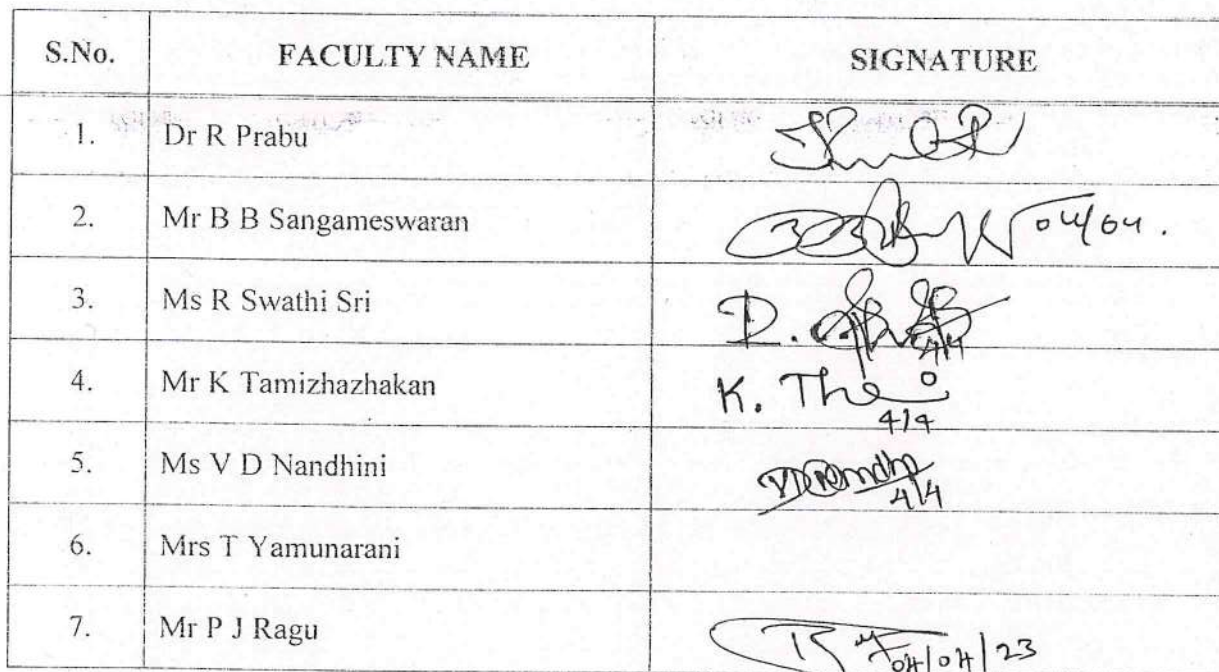 S.No. FACULTY NAME SIGNATURE
1. Dr R Prabu
2. Mr B B Sangameswaran 04/04.
3. Ms R Swathi Sri R.
4. Mr K Tamizhazhakan K. The
4/4
5. Ms V D Nandhini
4/4
6. Mrs T Yamunarani
7. Mr P J Ragu 04/04/23